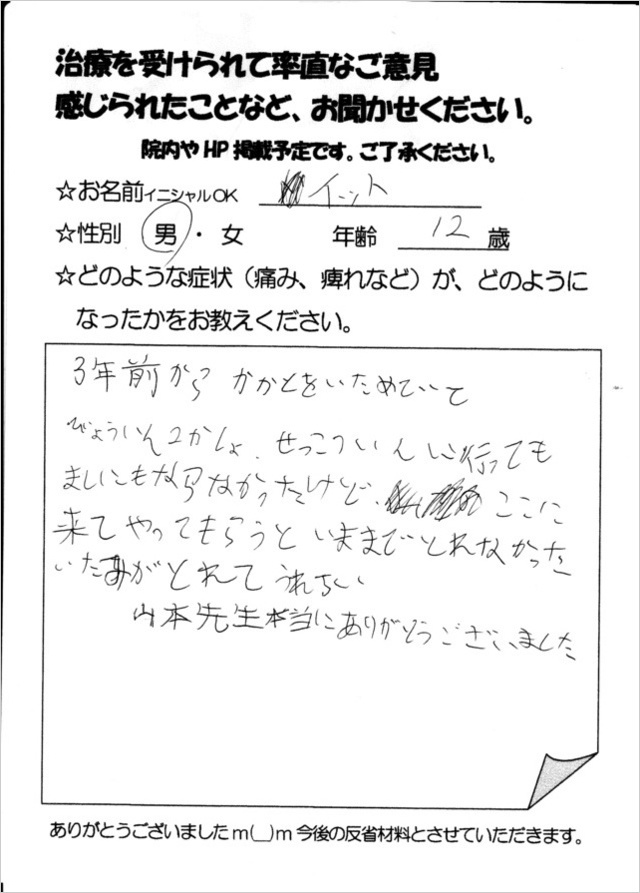 治療を受けられて率直なご意見
感じられたことなど、お聞かせください。
院内やHP掲載予定です。ご了承ください。
☆お名前イニシャルOK イニット
☆性別 男・女 年齢 12 歳
☆どのような症状（痛み、痺れなど）が、どのように
なったかをお教えください。
3年前から かかとをいためていて
びょういん2かしょ、せっこついんに行っても
ましにもならなかったけど、ここに
来てやってもらうと いままでとれなかった
いたみがとれてうれしい
山本先生本当にありがとうございました
ありがとうございましたm(__)m今後の反省材料とさせていただきます。